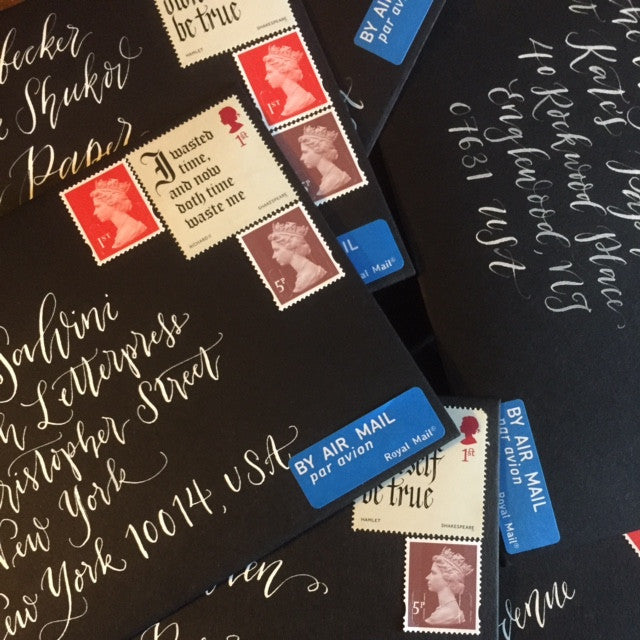 becker
Shukov
Paper
be true
HAMLET
SHAKESPEARE
1st
BY AIR MAIL
par avion
Kate's
40 Rockwood Place
Englewood, NJ
07631 USA
1st
I wasted
time,
and now
doth time
waste me
1st
RICHARD II
SHAKESPEARE
5P
Royal Mail
Salvini
Letterpress
Christopher Street
New York
New York 10014, USA
BY AIR MAIL
par avion
Royal Mail
1st
be true
HAMLET
SHAKESPEARE
5P
BY AIR MAIL
par avion
Royal Mail